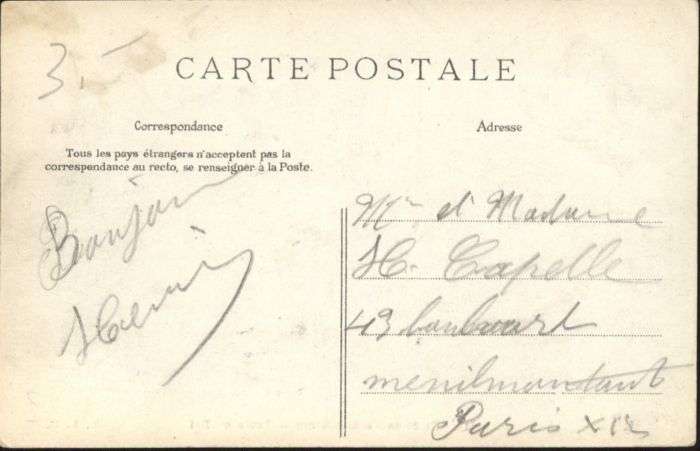 3.-
CARTE POSTALE
Correspondance
Tous les pays étrangers n'acceptent pas la
correspondance au recto, se renseigner à la Poste.
Bonjour
Henri
Adresse
Mr et Madame
H. Capelle
43
menilmontant
Paris XIe